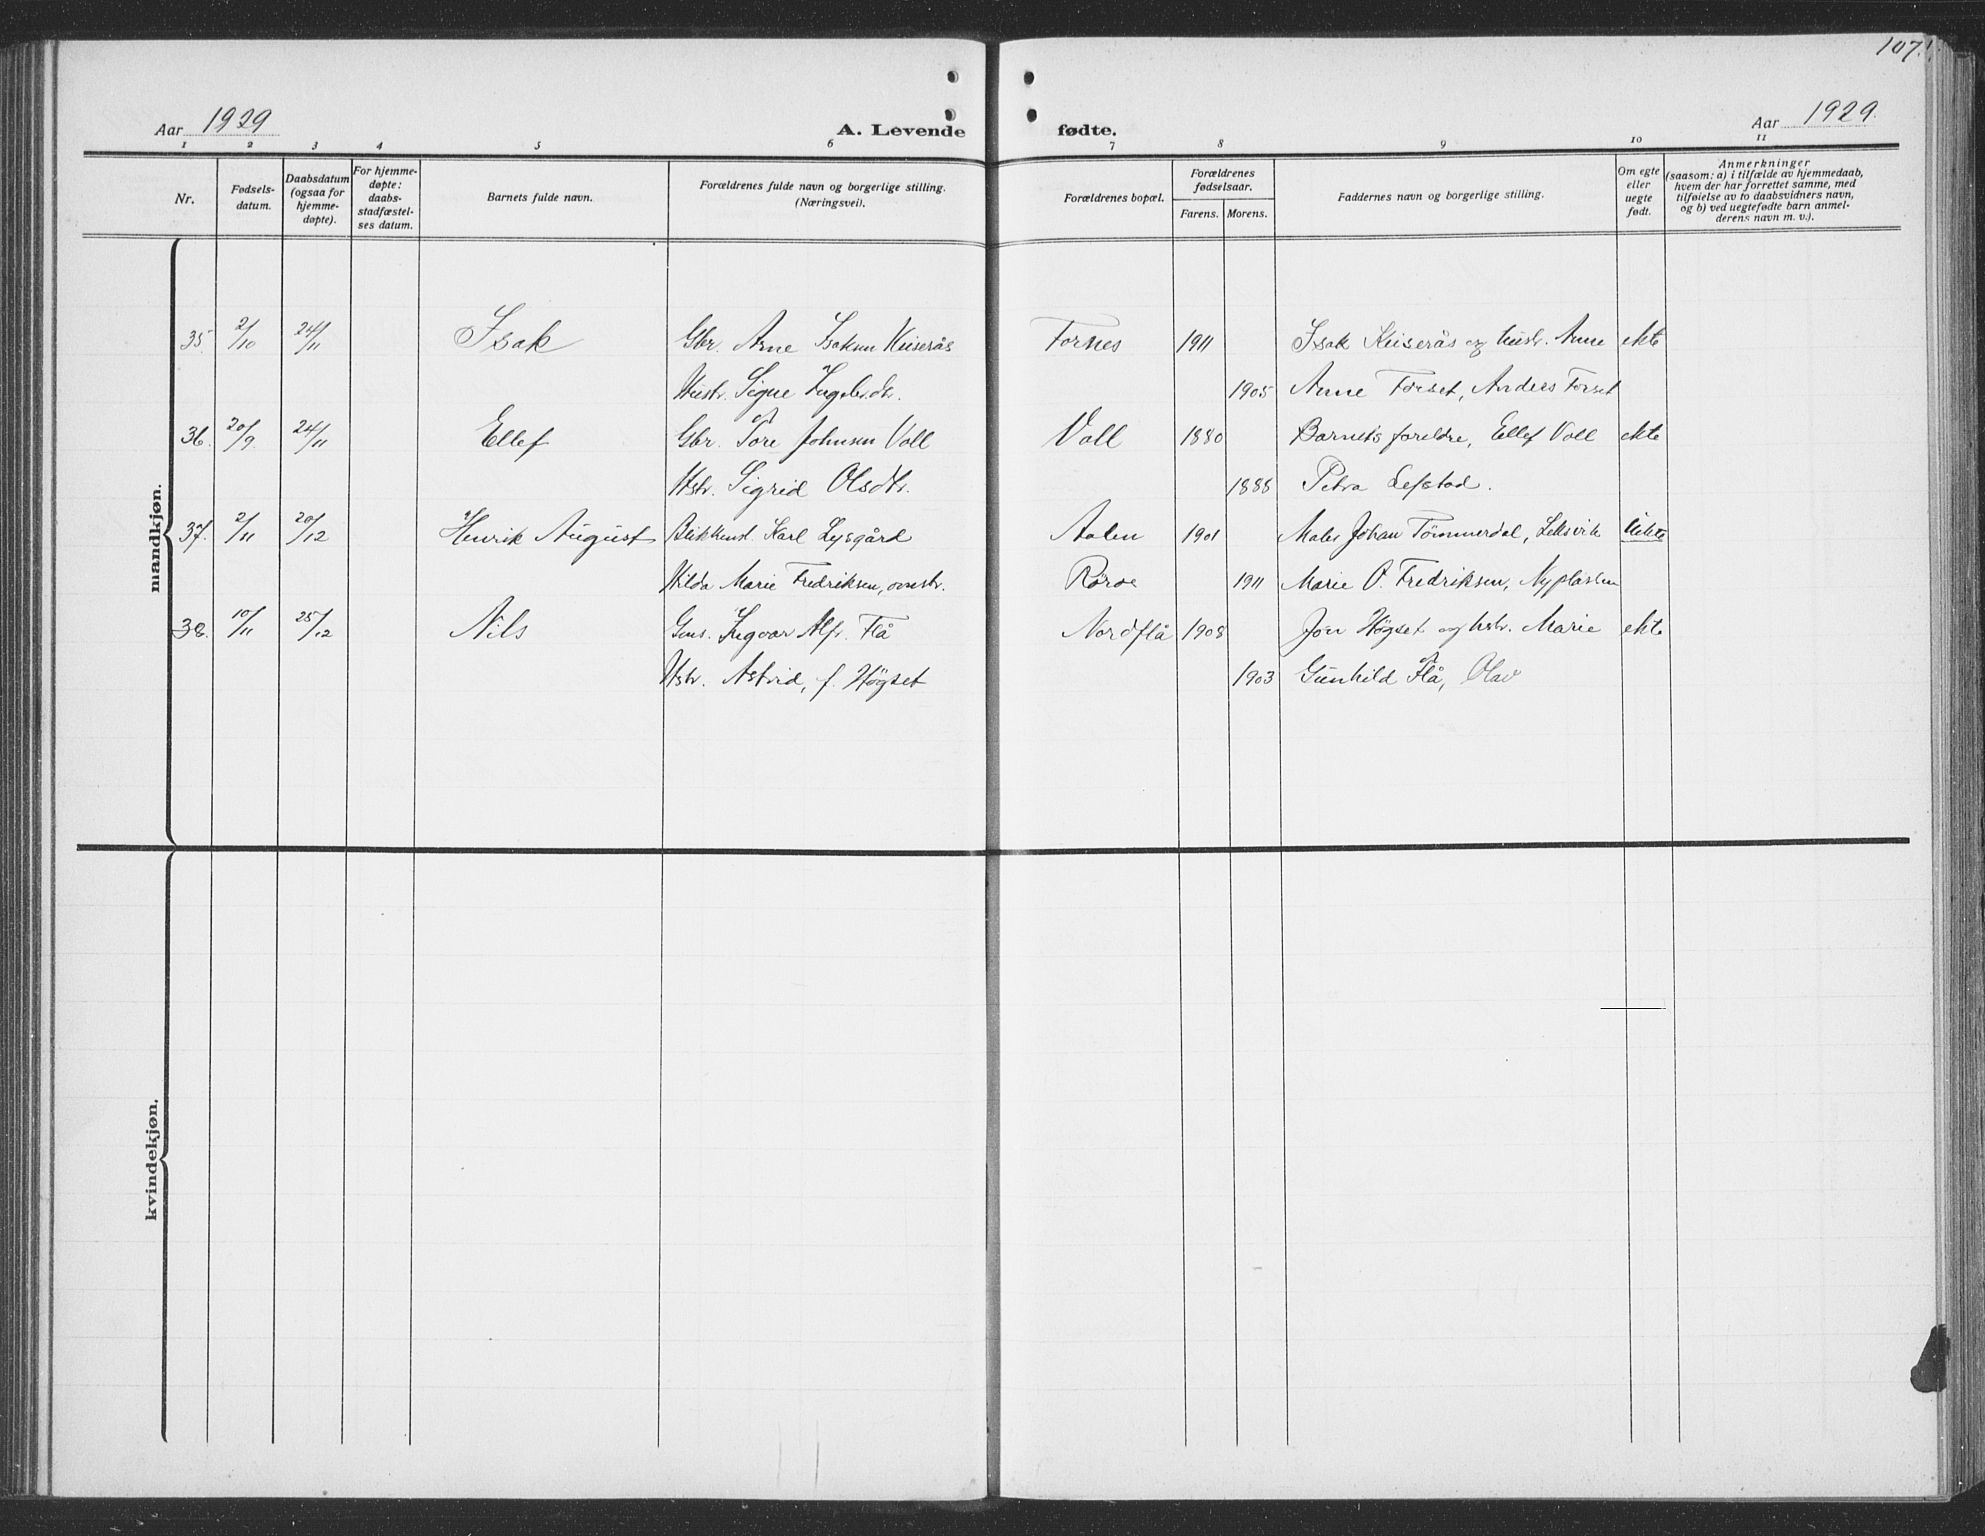 107.
Aar 1929
A. Levende fødte.
Aar 1929.
1 2 3 4 5 6 7 8 9 10 11
Nr.
Fødsels-
datum.
Daabsdatum
(ogsaa for
hjemme-
døpte).
For hjemme-
døpte:
daabs-
stadfæstel-
ses datum.
Barnets fulde navn.
Forældrenes fulde navn og borgerlige stilling.
(Næringsvei).
Forældrenes bopæl.
Forældrenes
fødselsaar.
Farens. Morens.
Faddernes navn og borgerlige stilling.
Om egte
eller
uegte
født.
Anmerkninger
(saasom: a) i tilfælde av hjemmedaab,
hvem der har forrettet samme, med
tilføielse av to daabsvidners navn,
og b) ved uegtefødte barn anmel-
derens navn m. v.).
mandkjøn.
35. 2/10 24/11 Isak Gbr. Arne Isaksen Kuiserås Fornes 1911 Isak Kuiserås og hustr. Anne ekte
Hustr. Signe Ingebr.dtr. 1905 Anne Forset, Anders Forset
36. 20/9 24/11 Ellef Gbr. Tore Johnsen Voll Voll 1880 Barnets foreldre, Ellef Voll ekte
Hstr. Sigrid Olsdtr. 1888 Petra Lefstad.
37. 2/11 20/12 Henrik August Blikkensl. Karl Lysgård Aalen 1901 Maler Johan Tömmerdal, Leksvik Uekte
Hilda Marie Fredriksen, Röros 1911 Marie O. Fredriksen, Nyplassen
38. 10/11 25/12 Nils Ingvar Alfr. Flå Nordflå 1908 Jon Högset og hstr. Marie ekte
Hstr. Astrid, f. Högset 1903 Gunhild Flå, Olav
kvindekjøn.